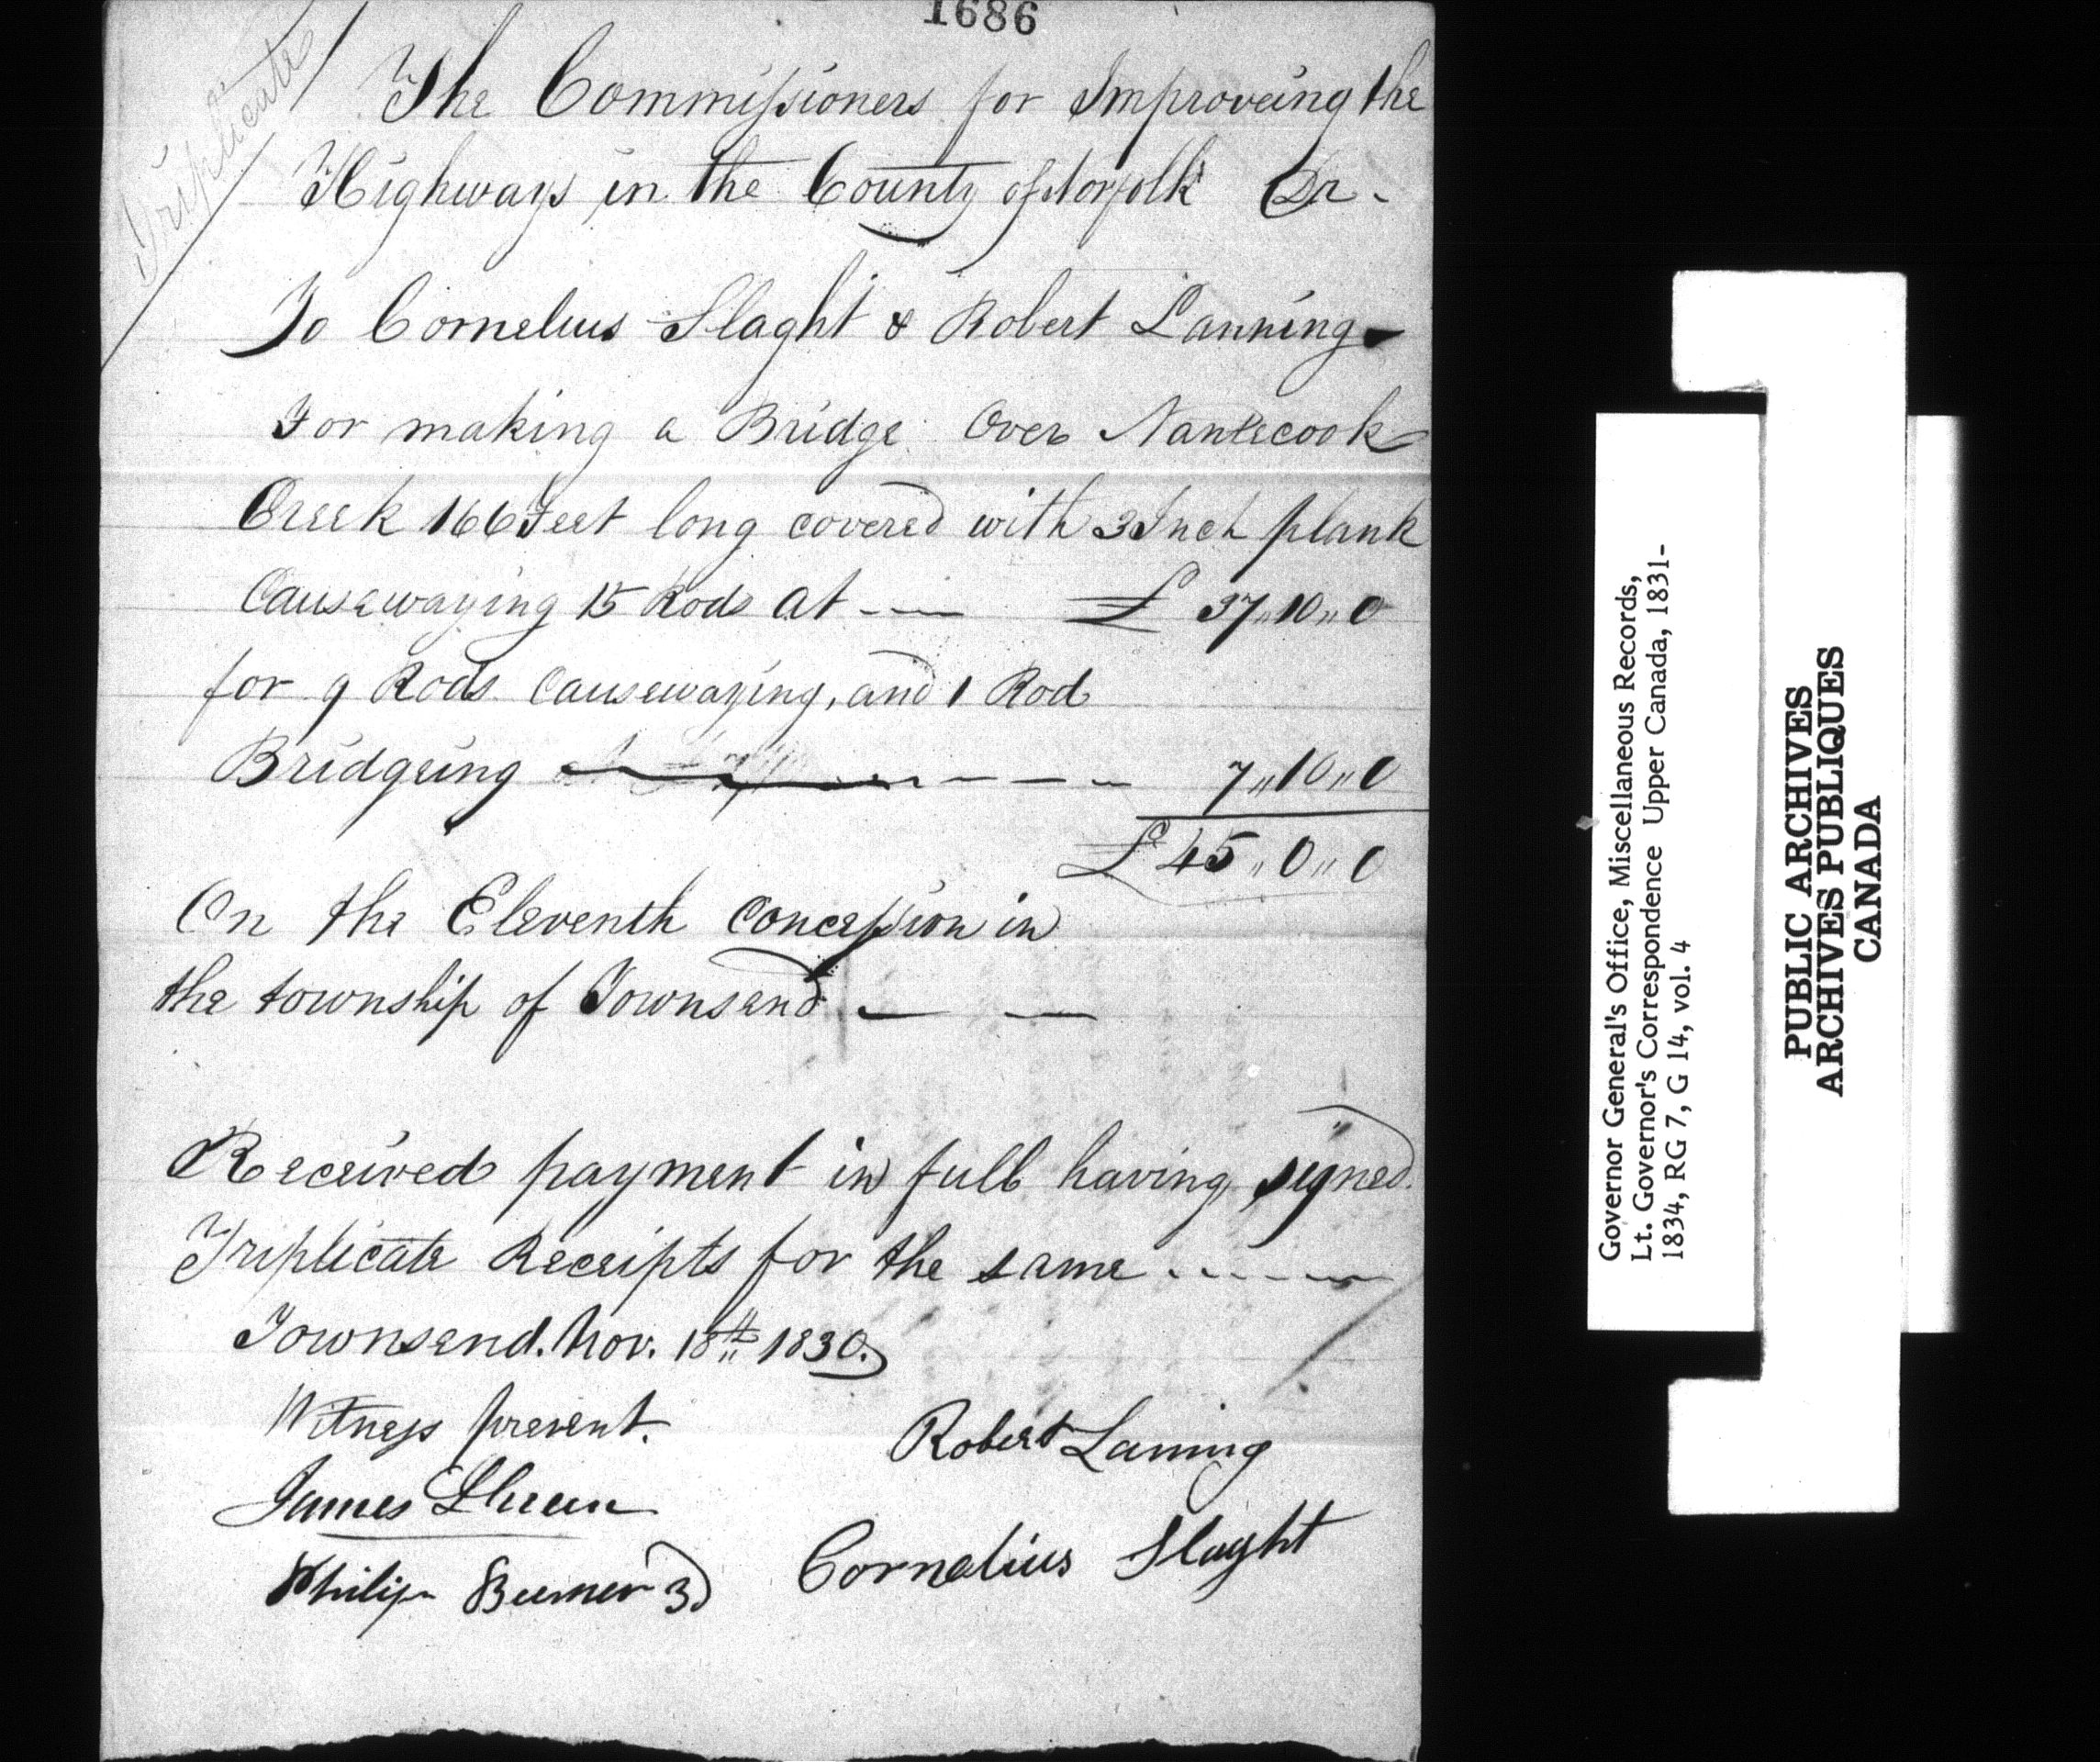 1686
Triplicate
The Commissioners for Improveing the
Highways in the County of Norfolk Dr.
To Cornelius Slaght & Robert Lanning
For making a Bridge Over Nantecook
Creek 166 Feet long covered with 3 Inch plank
Causewaying 15 Rods at - - — £ 37,,10,,0
for 9 Rods Causewaying, and 1 Rod
Bridgeing — — — 7,,10,,0
£ 45,,0,,0
On the Eleventh Concession in
the township of Townsend — —
Received payment in full having signed
Triplicate Receipts for the same - - - - -
Townsend. Nov. 18th 1830.
Witness present.
Robert Laning
James
Philip Beemer 3d
Cornelius Slaght
Governor General's Office, Miscellaneous Records,
Lt. Governor's Correspondence Upper Canada, 1831-
1834, RG 7, G 14, vol. 4
PUBLIC ARCHIVES
ARCHIVES PUBLIQUES
CANADA